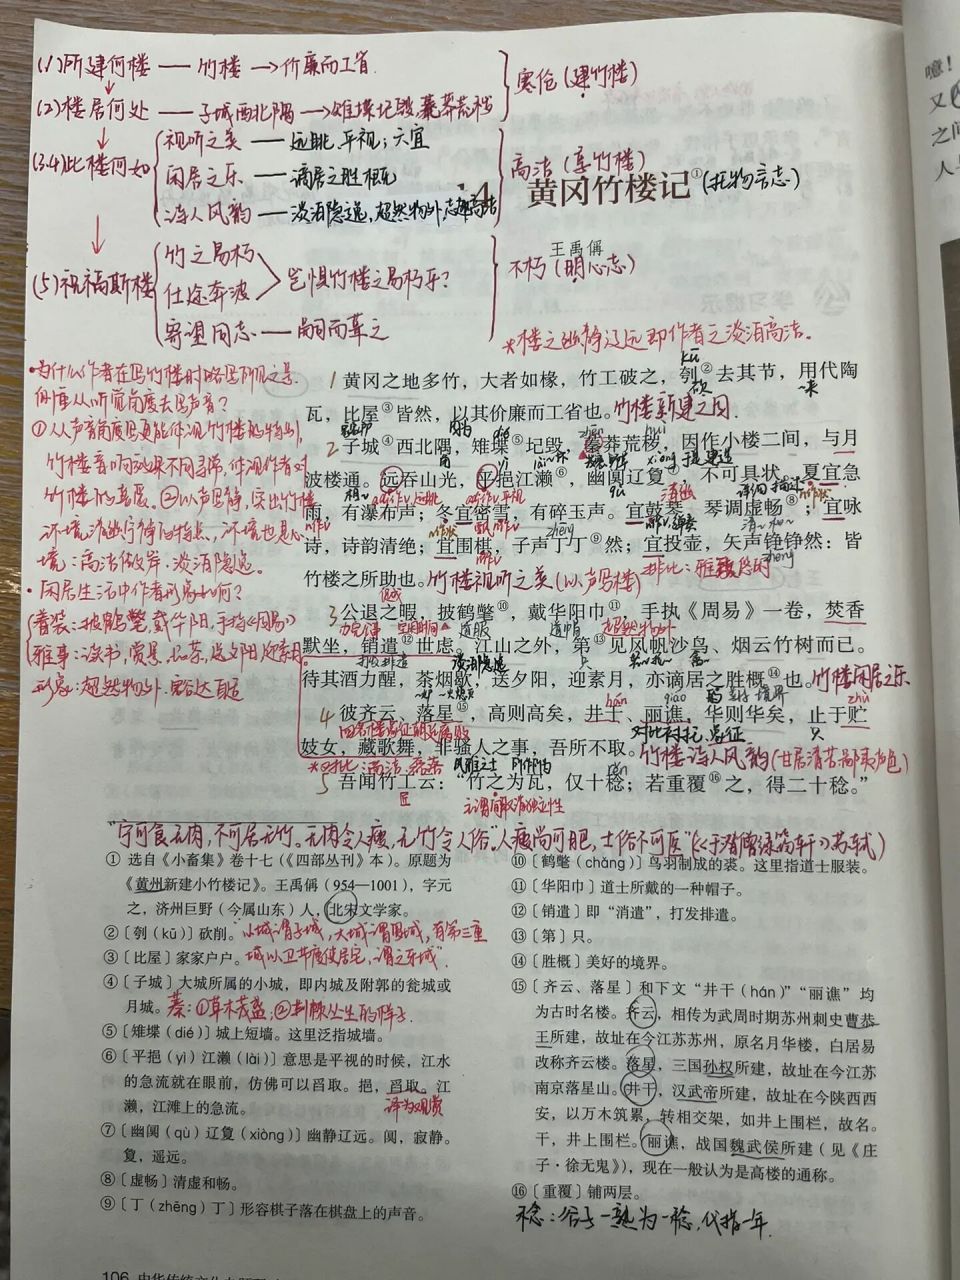 (1)所建何楼——竹楼→价廉而工省
寒伧(建竹楼)
(2)楼居何处——子城西北隅→雉堞圮毁,蓁莽荒秽
(3.4)此楼何如
视听之美——远眺、平视;六宜
闲居之乐——谪居之胜概
诗人风韵——淡泊隐逸,超然物外,志趣高洁
高洁(享竹楼)
14 黄冈竹楼记①(托物言志)
王禹偁
(5)祝福斯楼
竹之易朽
仕途奔波
岂惧竹楼之易朽乎?
寄望同志——嗣而葺之
不朽(明心志)
*楼之幽静辽远即作者之淡泊高洁。
1 黄冈之地多竹,大者如椽,竹工破之,刳②去其节,用代陶
瓦,比屋③皆然,以其价廉而工省也。竹楼新建之因.
2 子城④西北隅,雉堞⑤圮毁,蓁莽荒秽,因作小楼二间,与月
波楼通。远吞山光,平挹江濑⑥,幽阒辽夐⑦,不可具状。夏宜急
雨,有瀑布声;冬宜密雪,有碎玉声。宜鼓琴,琴调虚畅⑧;宜咏
诗,诗韵清绝;宜围棋,子声丁丁⑨然;宜投壶,矢声铮铮然:皆
竹楼之所助也。竹楼视听之美(以声写楼)
3 公退之暇,披鹤氅⑩,戴华阳巾⑪,手执《周易》一卷,焚香
默坐,销遣⑫世虑。江山之外,第⑬见风帆沙鸟、烟云竹树而已。
待其酒力醒,茶烟歇,送夕阳,迎素月,亦谪居之胜概⑭也。竹楼闲居之乐
4 彼齐云、落星⑮,高则高矣,井干、丽谯,华则华矣,止于贮
妓女,藏歌舞,非骚人之事,吾所不取。竹楼诗人风韵(甘居清苦鄙弃声色)
5 吾闻竹工云:“竹之为瓦,仅十稔;若重覆⑯之,得二十稔。”
•为什么作者在写竹楼时略写所见之景.
①从声音角度写更能体现竹楼的特别,
竹楼音响效果不同寻常,体现作者对
•闲居生活中作者形象如何?
着装:披鹤氅,戴华阳巾,手持《周易》
形象:超然物外.豁达自适
“宁可食无肉,不可居无竹。无肉令人瘦,无竹令人俗”“人瘦尚可肥,士俗不可医”《于潜僧绿筠轩》苏轼)
① 选自《小畜集》卷十七(《四部丛刊》本)。原题为
《黄州新建小竹楼记》。王禹偁(954—1001),字元
之,济州巨野(今属山东)人,北宋文学家。
②〔刳(kū)〕砍削。“小城谓子城,大城谓罗城,有第三重
③〔比屋〕家家户户。城以卫节度使居宅,谓之牙城”
④〔子城〕大城所属的小城,即内城及附郭的瓮城或
月城。蓁:①草木茂盛,②荆棘丛生的样子.
⑤〔雉堞(dié)〕城上短墙。这里泛指城墙。
⑥〔平挹(yì)江濑(lài)〕意思是平视的时候,江水
的急流就在眼前,仿佛可以舀取。挹,舀取。江
濑,江滩上的急流。 译为观赏
⑦〔幽阒(qù)辽夐(xiòng)〕幽静辽远。阒,寂静。
夐,遥远。
⑧〔虚畅〕清虚和畅。
⑨〔丁(zhēng)丁〕形容棋子落在棋盘上的声音。
⑩〔鹤氅(chǎng)〕鸟羽制成的裘。这里指道士服装。
⑪〔华阳巾〕道士所戴的一种帽子。
⑫〔销遣〕即“消遣”,打发排遣。
⑬〔第〕只。
⑭〔胜概〕美好的境界。
⑮〔齐云、落星〕和下文“井干(hán)”“丽谯”均
为古时名楼。齐云,相传为武周时期苏州刺史曹恭
王所建,故址在今江苏苏州,原名月华楼,白居易
改称齐云楼。落星,三国孙权所建,故址在今江苏
南京落星山。井干,汉武帝所建,故址在今陕西西
安,以万木筑累,转相交架,如井上围栏,故名。
干,井上围栏。丽谯,战国魏武侯所建(见《庄
子·徐无鬼》),现在一般认为是高楼的通称。
⑯〔重覆〕铺两层。
稔:谷子一熟为一稔,代指一年.
106
噫!
又
之间
人